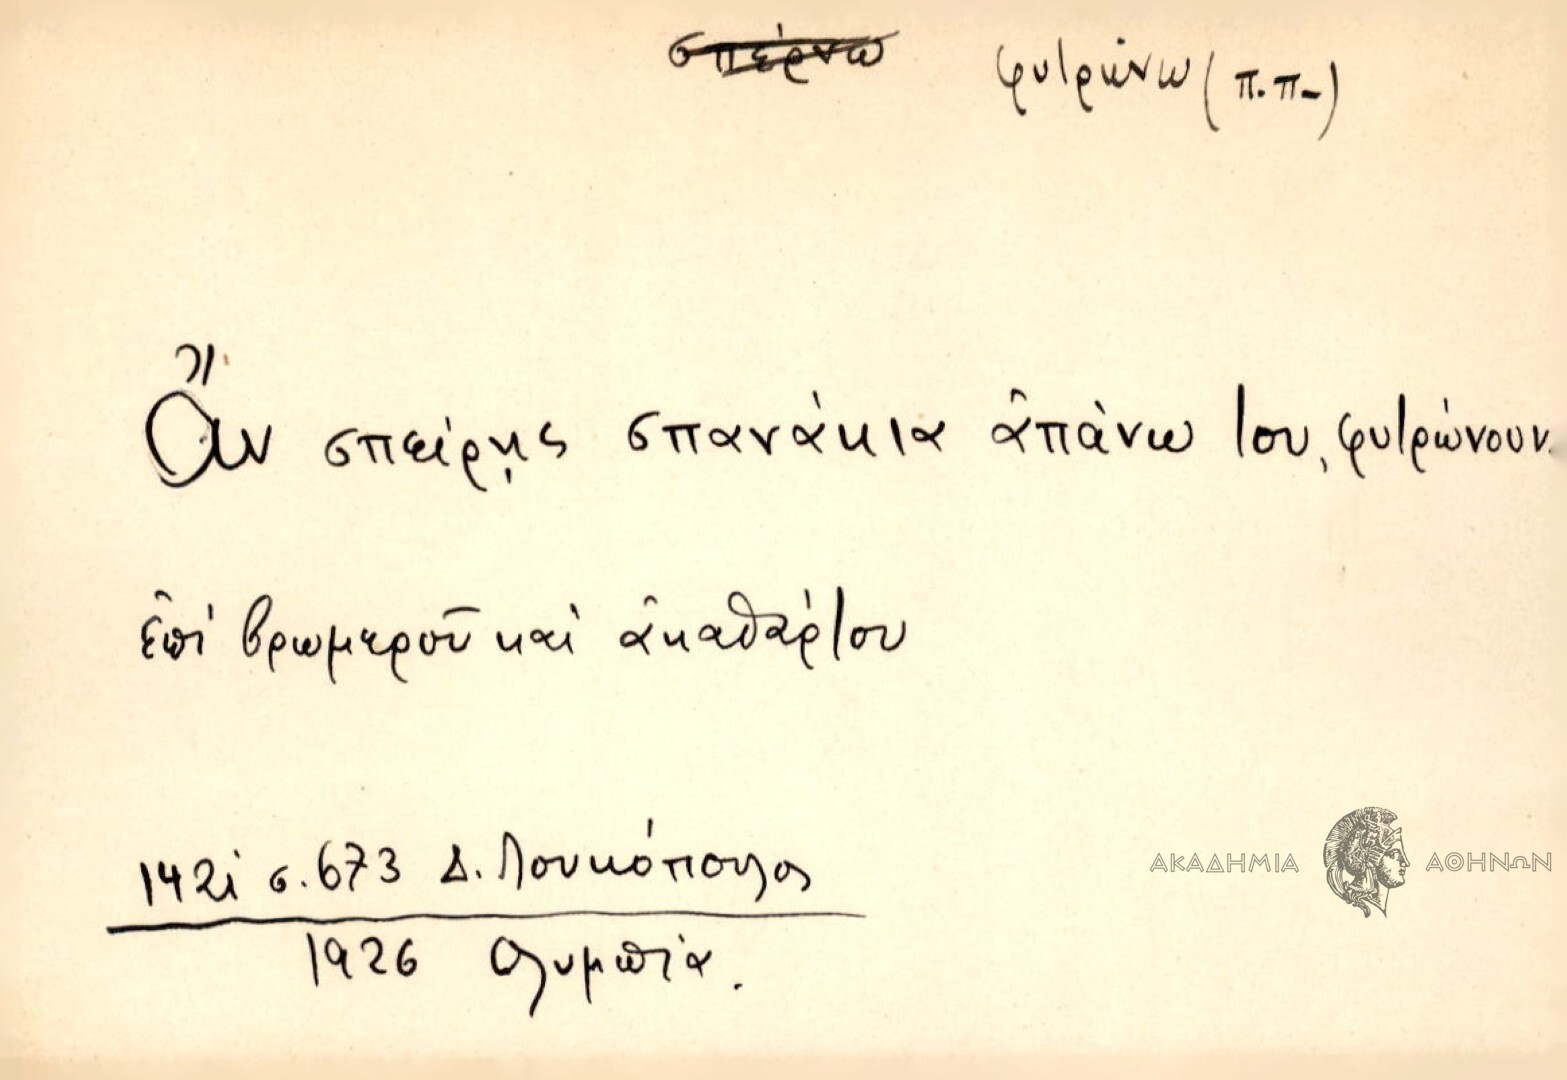 σπέρνω φυτρώνω (π.π-)
Ἂν σπείρῃς σπανάκια ἀπάνω του, φυτρώνουν.
ἐπί βρωμεροῦ καὶ ἀκαθάρτου
142i σ. 673 Δ. Λουκόπουλος
1926 Ολυμπία.
ΑΚΑΔΗΜΙΑ ΑΘΗΝΩΝ